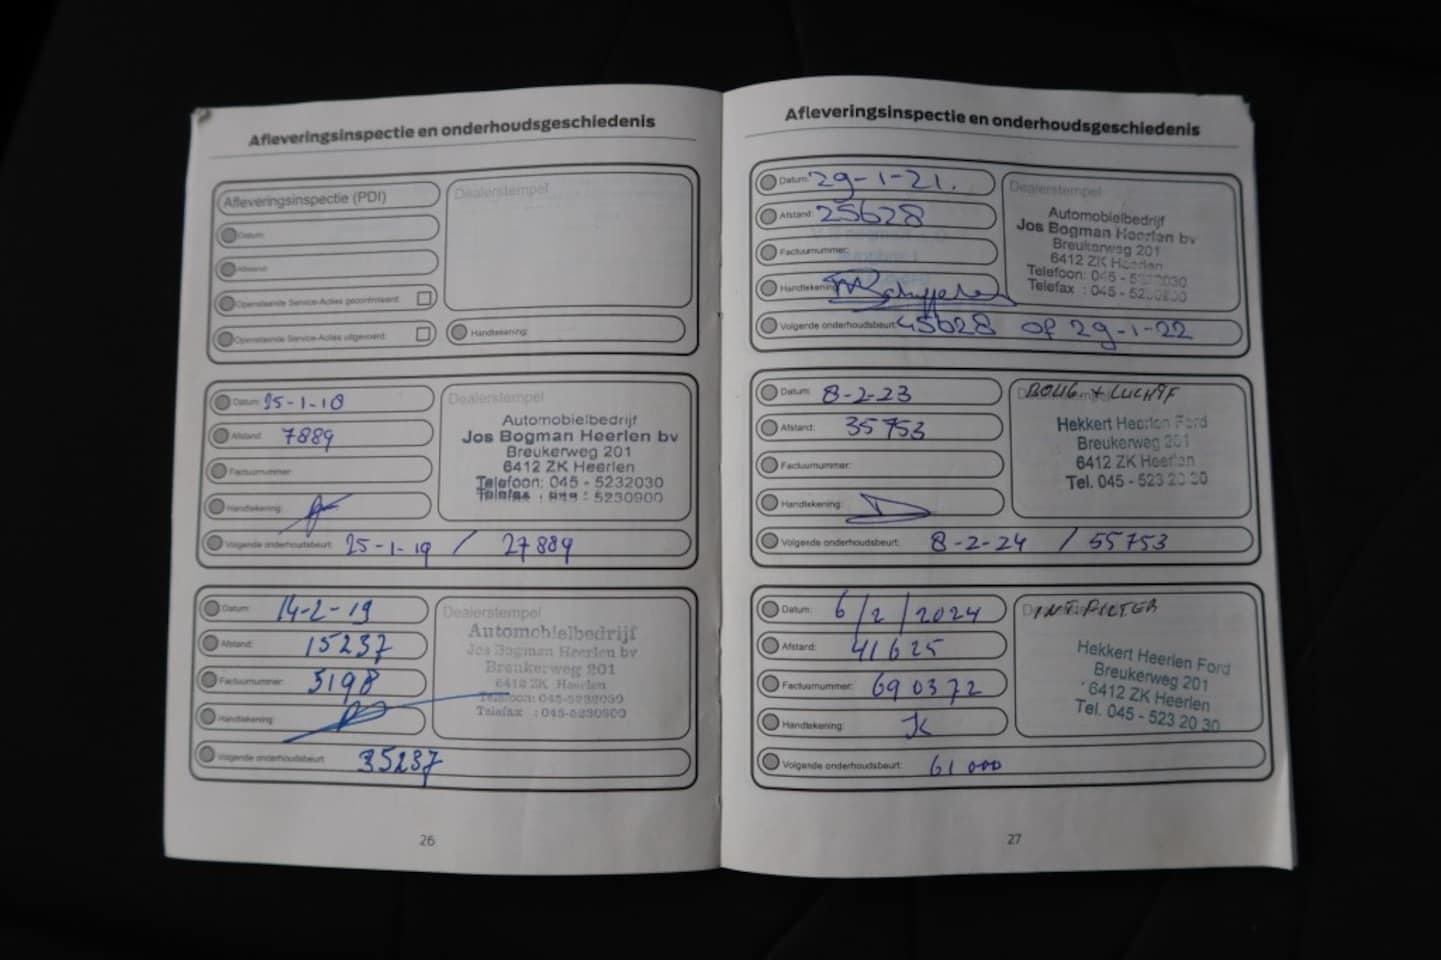 Afleveringsinspectie en onderhoudsgeschiedenis
Afleveringsinspectie (PDI)
Datum:
Afstand:
Openstaande Service-Acties gecontroleerd:
Openstaande Service-Acties uitgevoerd:
Dealerstempel
Handtekening:
Datum: 25-1-18
Afstand: 7889
Factuurnummer:
Handtekening:
Volgende onderhoudsbeurt: 25-1-19 / 27889
Dealerstempel
Automobielbedrijf
Jos Bogman Heerlen bv
Breukerweg 201
6412 ZK Heerlen
Telefoon: 045 - 5232030
Telefax : 045 - 5230900
Datum: 14-2-19
Afstand: 15237
Factuurnummer: 5198
Handtekening:
Volgende onderhoudsbeurt: 35237
Dealerstempel
Automobielbedrijf
Jos Bogman Heerlen bv
Breukerweg 201
6412 ZK Heerlen
Telefoon: 045-5232030
Telefax : 045-5230900
26
Afleveringsinspectie en onderhoudsgeschiedenis
Datum: 29-1-21.
Afstand: 25628
Factuurnummer:
Handtekening:
Volgende onderhoudsbeurt: 45628 of 29-1-22
Dealerstempel
Automobielbedrijf
Jos Bogman Heerlen bv
Breukerweg 201
6412 ZK Heerlen
Telefoon: 045 - 5232030
Telefax : 045 - 5230900
Datum: 8-2-23
Afstand: 35753
Factuurnummer:
Handtekening:
Volgende onderhoudsbeurt: 8-2-24 / 55753
Hekkert Heerlen Ford
Breukerweg 201
6412 ZK Heerlen
Tel. 045 - 523 20 30
Datum: 6/2/2024
Afstand: 41625
Factuurnummer: 690372
Handtekening: JK
Volgende onderhoudsbeurt: 61000
INT. FILTER
Hekkert Heerlen Ford
Breukerweg 201
6412 ZK Heerlen
Tel. 045 - 523 20 30
27